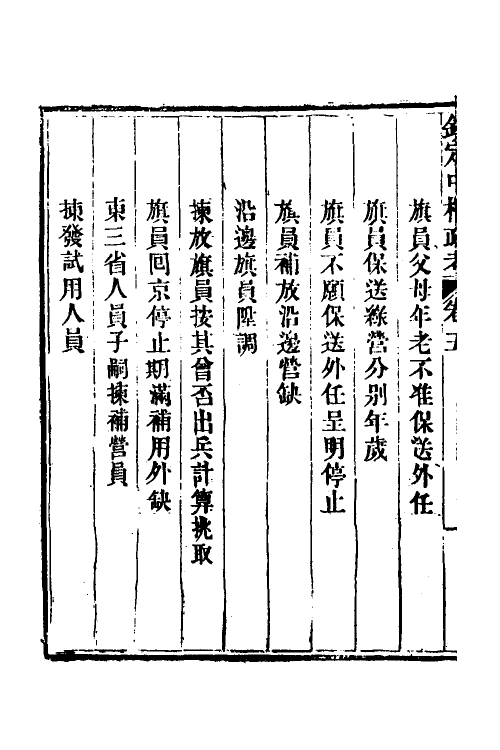 欽定中樞政考 卷五
旗員父母年老不准保送外任
旗員保送綠營分別年歲
旗員不願保送外任呈明停止
旗員補放沿邊營缺
沿邊旗員陞調
揀放旗員按其曾否出兵計算挑取
旗員回京停止期滿補用外缺
東三省人員子嗣揀補營員
揀發試用人員